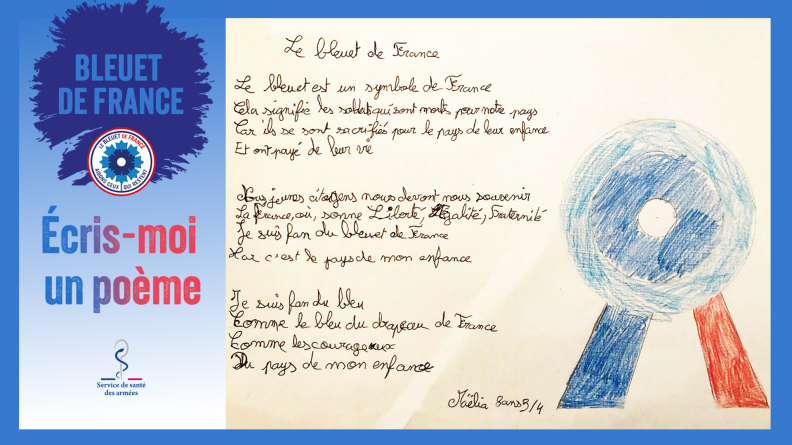 BLEUET
DE FRANCE
LE BLEUET DE FRANCE
AIDONS CEUX QUI RESTENT
Écris-moi
un poème
Service de santé
des armées
Le bleuet de France
Le bleuet est un symbole de France
Cela signifie les soldats qui sont morts pour notre pays
Car ils se sont sacrifiés pour le pays de leur enfance
Et ont payé de leur vie
Nous jeunes citoyens nous devont nous souvenir
La france, où, sonne Liberté, Egalité, Fraternité
Je suis fan du bleuet de France
Car c'est le pays de mon enfance
Je suis fan du bleu
Comme le bleu du drapeau de France
Comme les courageux
Du pays de mon enfance
Maëlia 8ans3/4